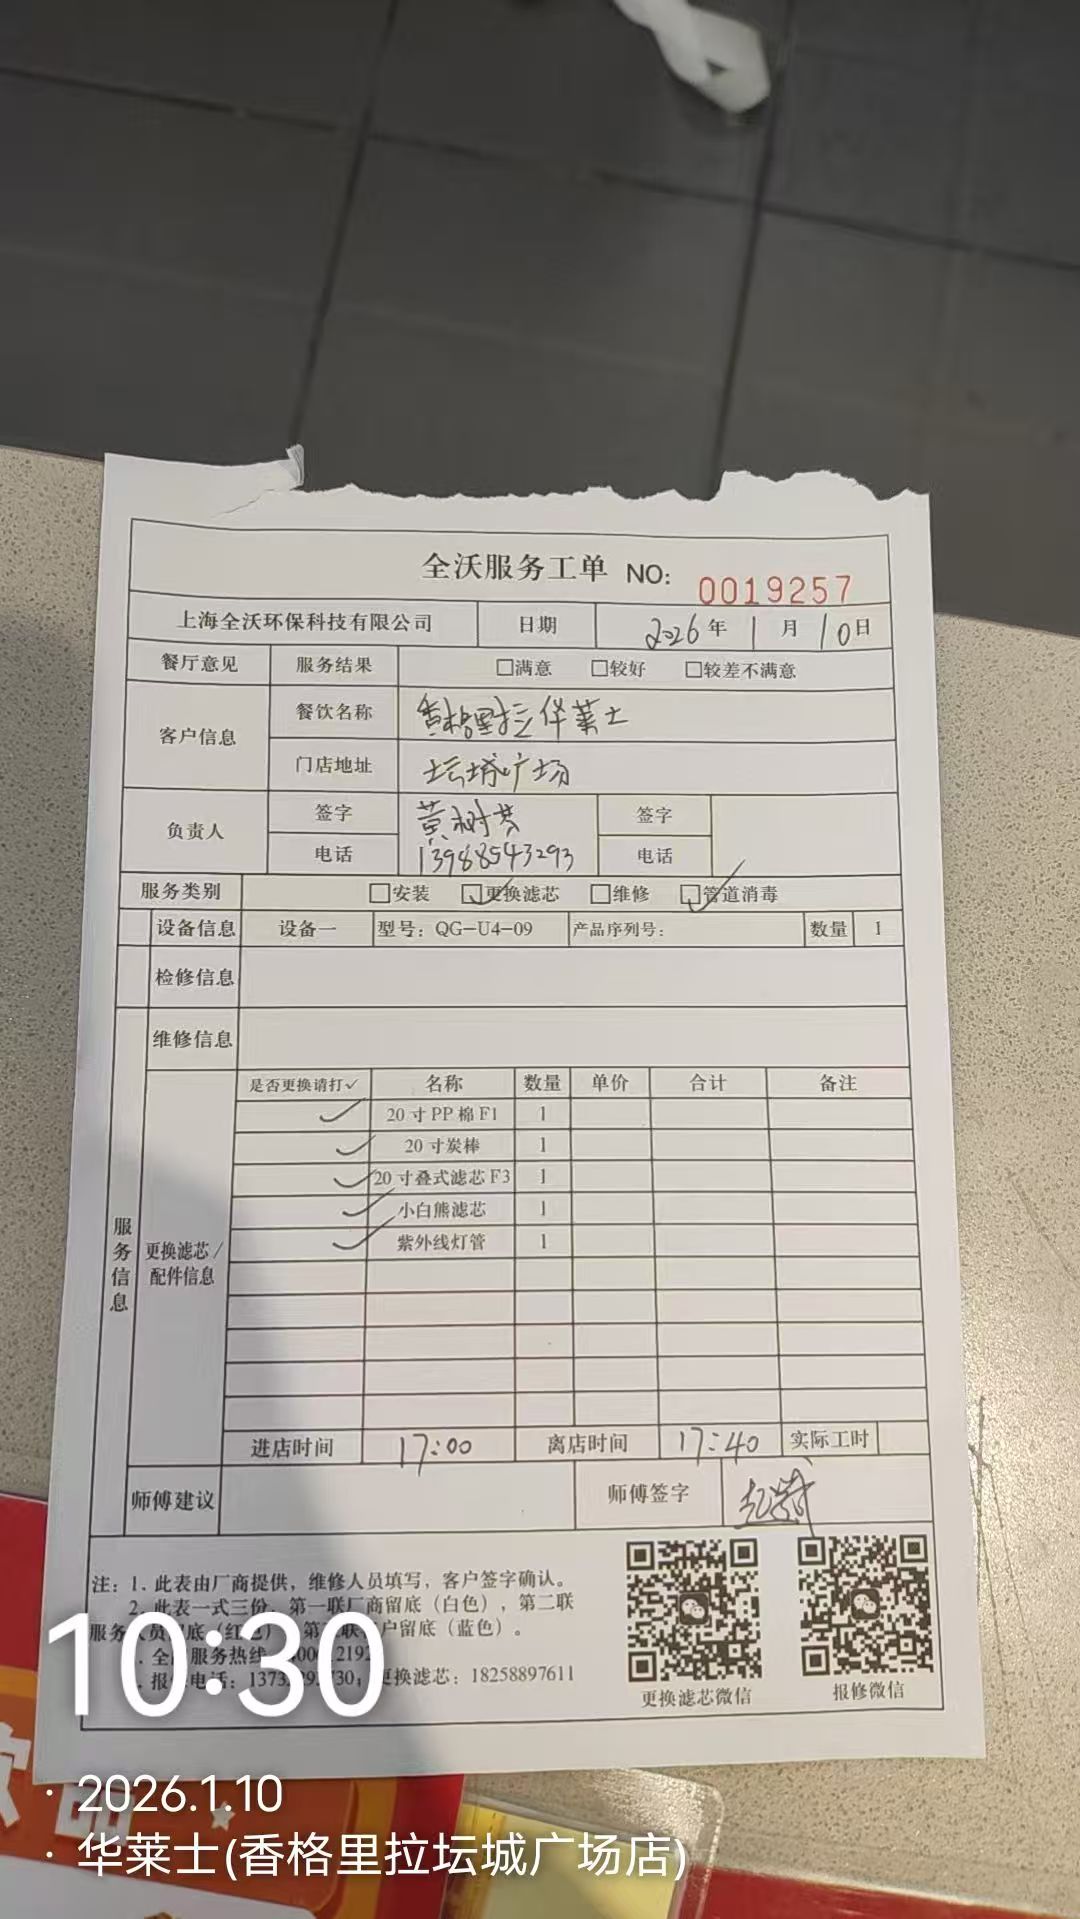 全沃服务工单 NO: 0019257
上海全沃环保科技有限公司 日期 2026年1月10日
餐厅意见 服务结果 □满意 □较好 □较差不满意
客户信息 餐饮名称 香格里拉华莱士
门店地址 坛城广场
负责人 签字 黄树芬 签字
电话 13988543293 电话
服务类别 □安装 ☑更换滤芯 □维修 ☑管道消毒
设备信息 设备一 型号: QG-U4-09 产品序列号: 数量 1
检修信息
维修信息
服务信息
更换滤芯/配件信息
是否更换请打✓ 名称 数量 单价 合计 备注
✓ 20寸PP棉F1 1
✓ 20寸炭棒 1
✓ 20寸叠式滤芯F3 1
✓ 小白熊滤芯 1
✓ 紫外线灯管 1
进店时间 17:00 离店时间 17:40 实际工时
师傅建议 师傅签字
注: 1. 此表由厂商提供，维修人员填写，客户签字确认。
2. 此表一式三份，第一联厂商留底（白色），第二联
服务人员留底（红色），第三联客户留底（蓝色）。
服务热线
报修电话: 更换滤芯: 18258897611
更换滤芯微信 报修微信
10:30
· 2026.1.10
· 华莱士(香格里拉坛城广场店)